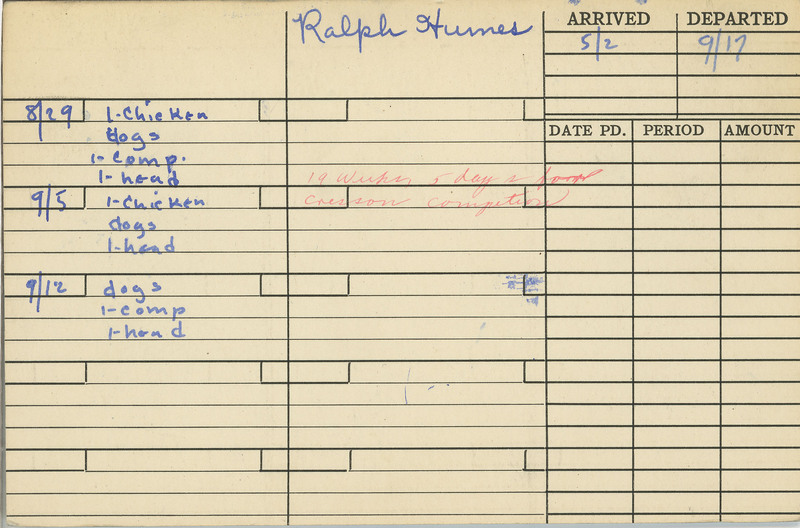 Ralph Humes
ARRIVED DEPARTED
5/2 9/17
8/29 1-Chicken
dogs
1-comp.
1-head
DATE PD. PERIOD AMOUNT
19 Weeks 5 days
Cresson Competion
9/5 1-Chicken
dogs
1-head
9/12 dogs
1-comp
1-head